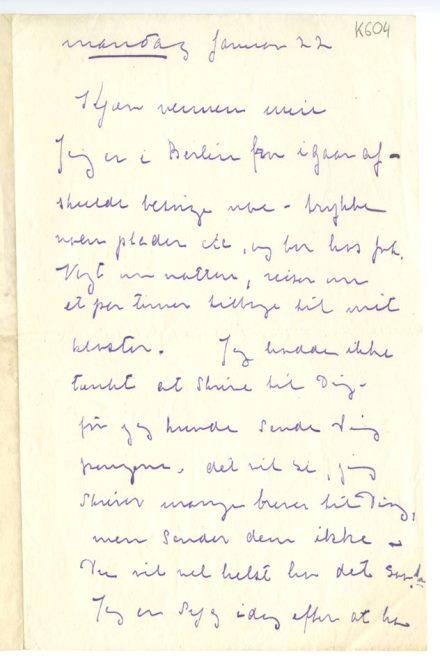 K604
mandag Januar 22
Kjære vennen min
Jeg er i Berlin for igaar af-
skulde besørge noe - trykke
noen plader etc, og bor hos frk.
Vogt om natten, reiser om
et par timer tilbage til mit
kloster. Jeg hadde ikke
tænkt at skrive til Dig -
før jeg kunde sende Dig
pengene. det vil si, jeg
skriver mange brever til Dig,
men sender dem ikke -
Du vil vel helst ha det
Jeg er syg idag efter at ha